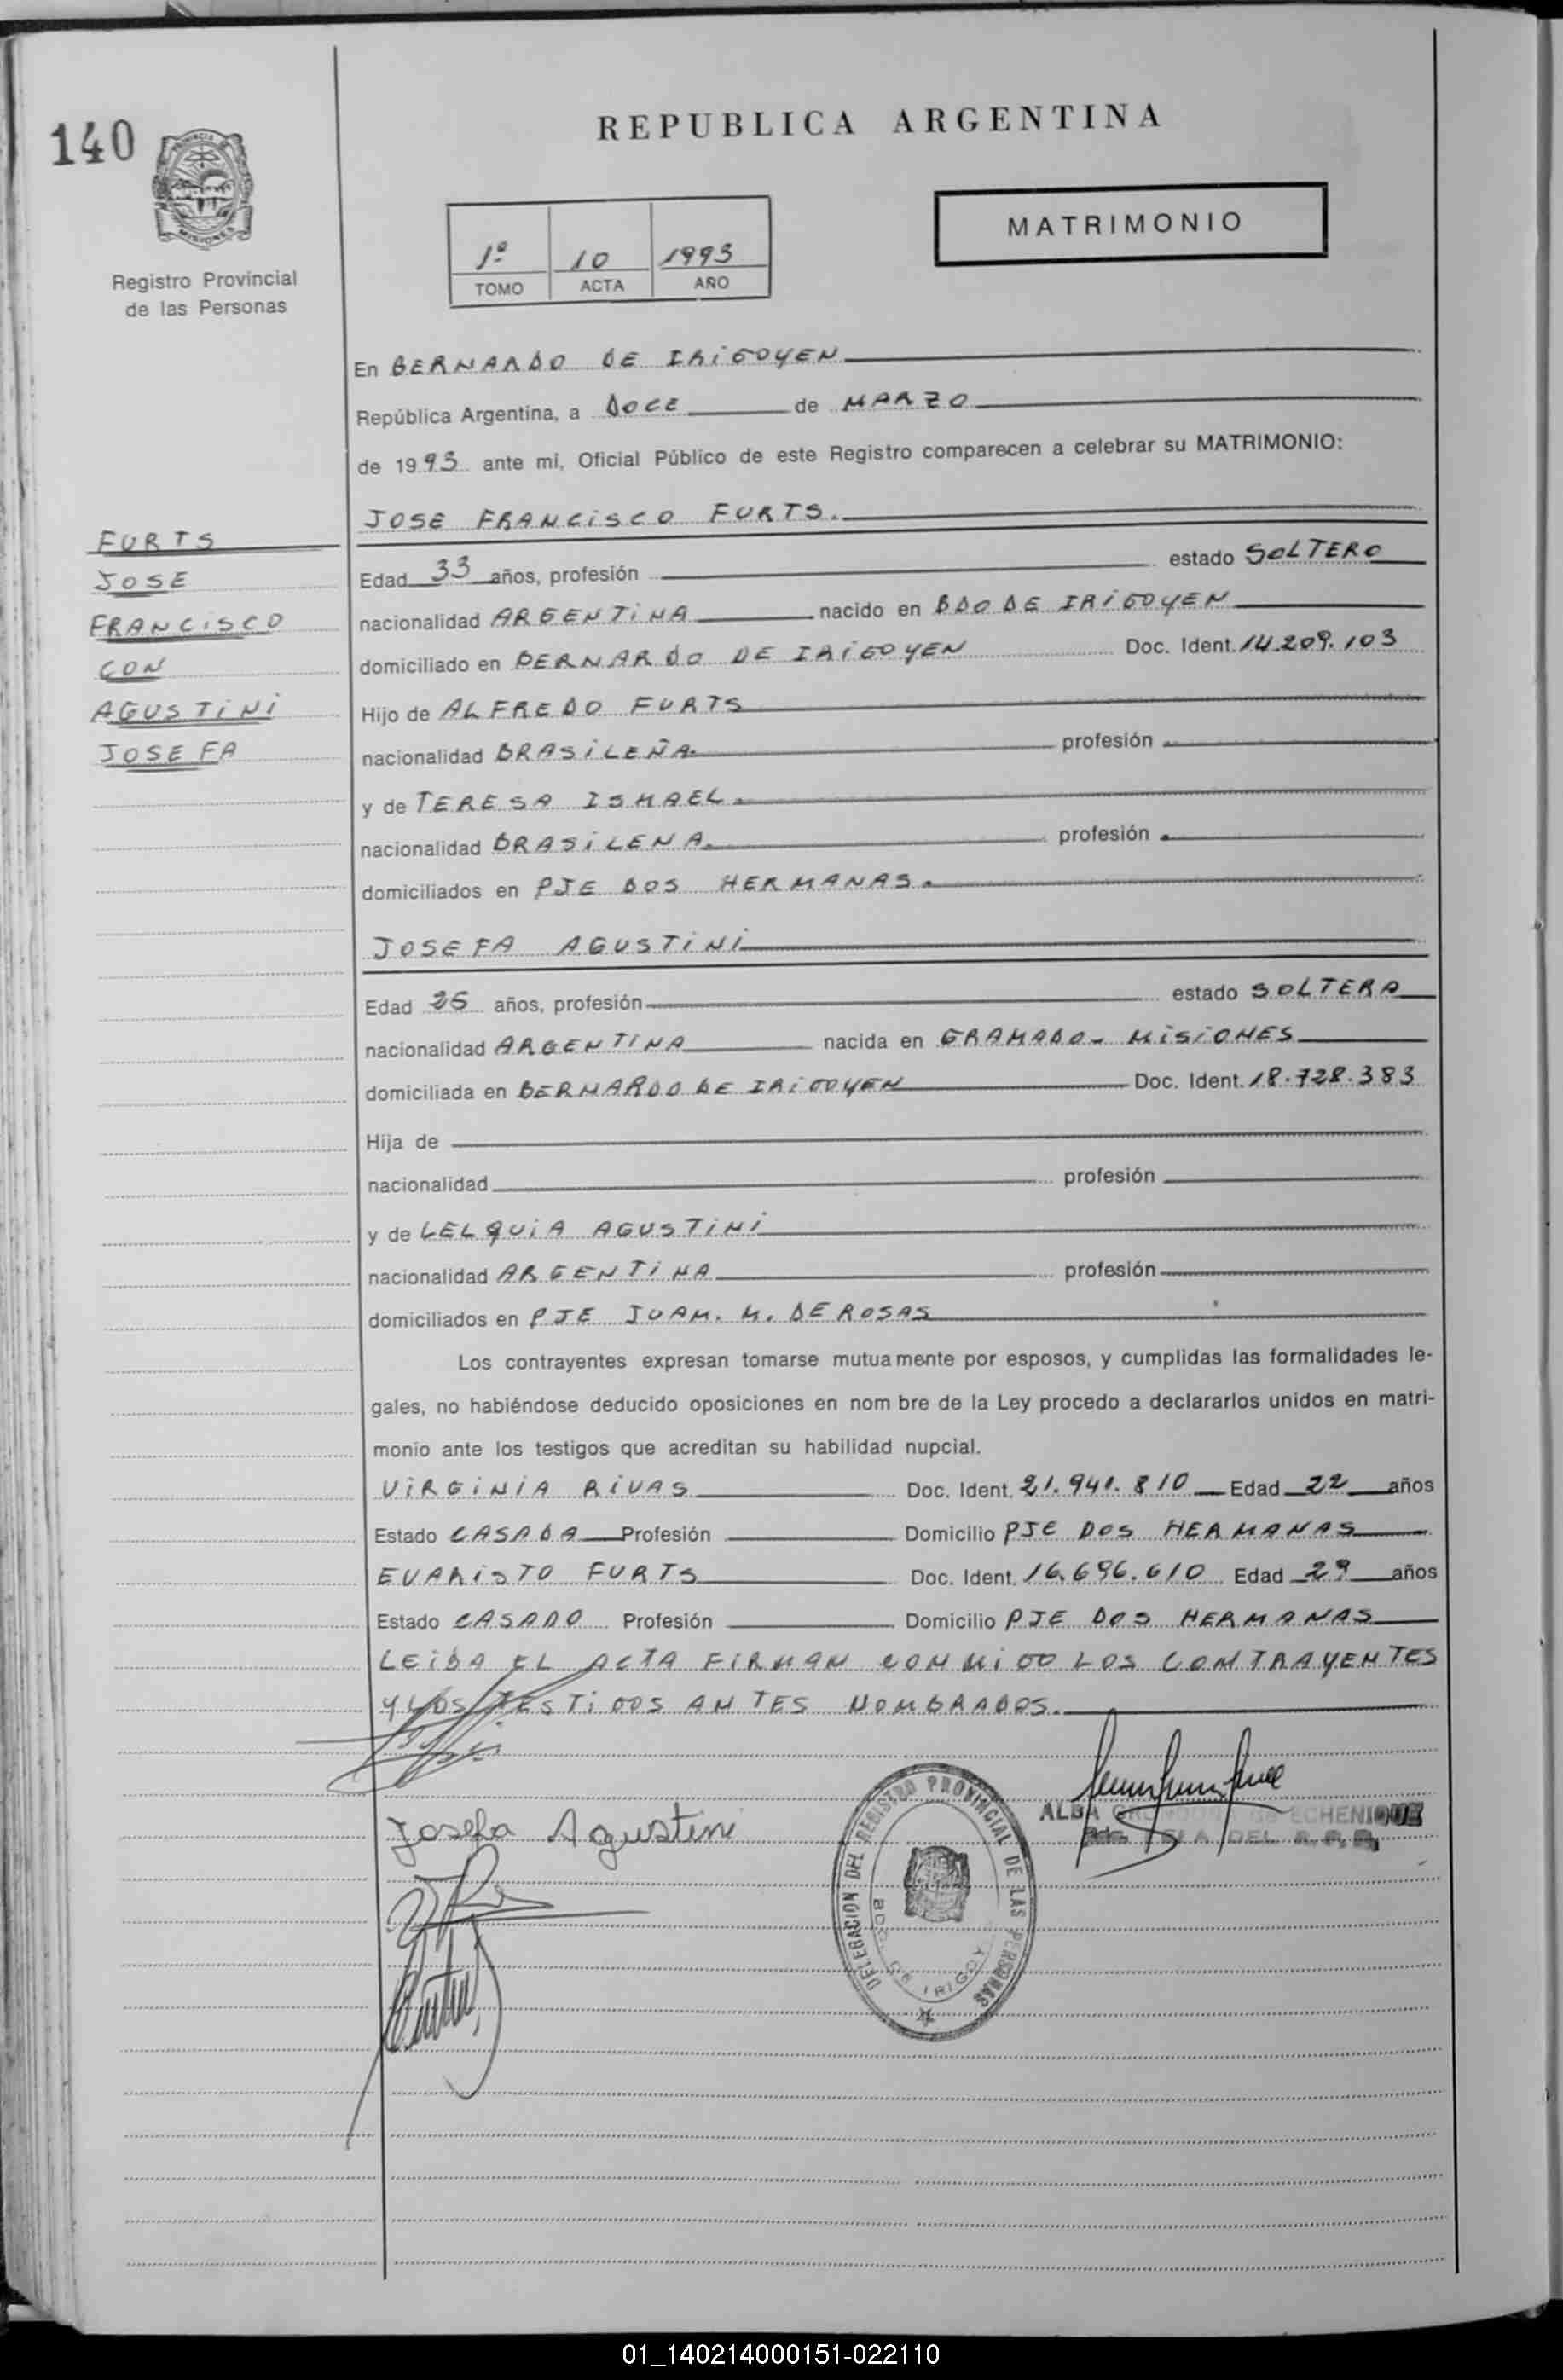 140
REPUBLICA ARGENTINA
PROVINCIA
MISIONES
Registro Provincial
de las Personas
1º 10 1993
TOMO ACTA AÑO
MATRIMONIO
En BERNARDO DE IRIGOYEN
República Argentina, a DOCE de MARZO
de 1993 ante mi, Oficial Público de este Registro comparecen a celebrar su MATRIMONIO:
FURTS
JOSE
FRANCISCO
CON
AGUSTINI
JOSEFA
JOSE FRANCISCO FURTS.
Edad 33 años, profesión estado SOLTERO
nacionalidad ARGENTINA nacido en BDO DE IRIGOYEN
domiciliado en BERNARDO DE IRIGOYEN Doc. Ident. 14.209.103
Hijo de ALFREDO FURTS
nacionalidad BRASILEÑA. profesión
y de TERESA ISMAEL.
nacionalidad BRASILENA. profesión
domiciliados en PJE DOS HERMANAS.
JOSEFA AGUSTINI
Edad 25 años, profesión estado SOLTERA
nacionalidad ARGENTINA nacida en GRAMADO - MISIONES
domiciliada en BERNARDO DE IRIGOYEN Doc. Ident. 18.728.383
Hija de
nacionalidad profesión
y de LELQUIA AGUSTINI
nacionalidad ARGENTINA profesión
domiciliados en PJE JUAN. M. DE ROSAS
Los contrayentes expresan tomarse mutuamente por esposos, y cumplidas las formalidades le-
gales, no habiéndose deducido oposiciones en nom bre de la Ley procedo a declararlos unidos en matri-
monio ante los testigos que acreditan su habilidad nupcial.
VIRGINIA RIVAS Doc. Ident. 21.941.810 Edad 22 años
Estado CASADA Profesión Domicilio PJE DOS HERMANAS
EVARISTO FURTS Doc. Ident. 16.696.610 Edad 29 años
Estado CASADO Profesión Domicilio PJE DOS HERMANAS
LEIDA EL ACTA FIRMAN CONMIGO LOS CONTRAYENTES
Y LOS TESTIGOS ANTES NOMBRADOS.
Josefa Agustini
ALBA ECHENIQUE
DEL R. P. P.
DELEGACION DEL REGISTRO PROVINCIAL DE LAS PERSONAS
BDO. DE IRIGOY
01_140214000151-022110